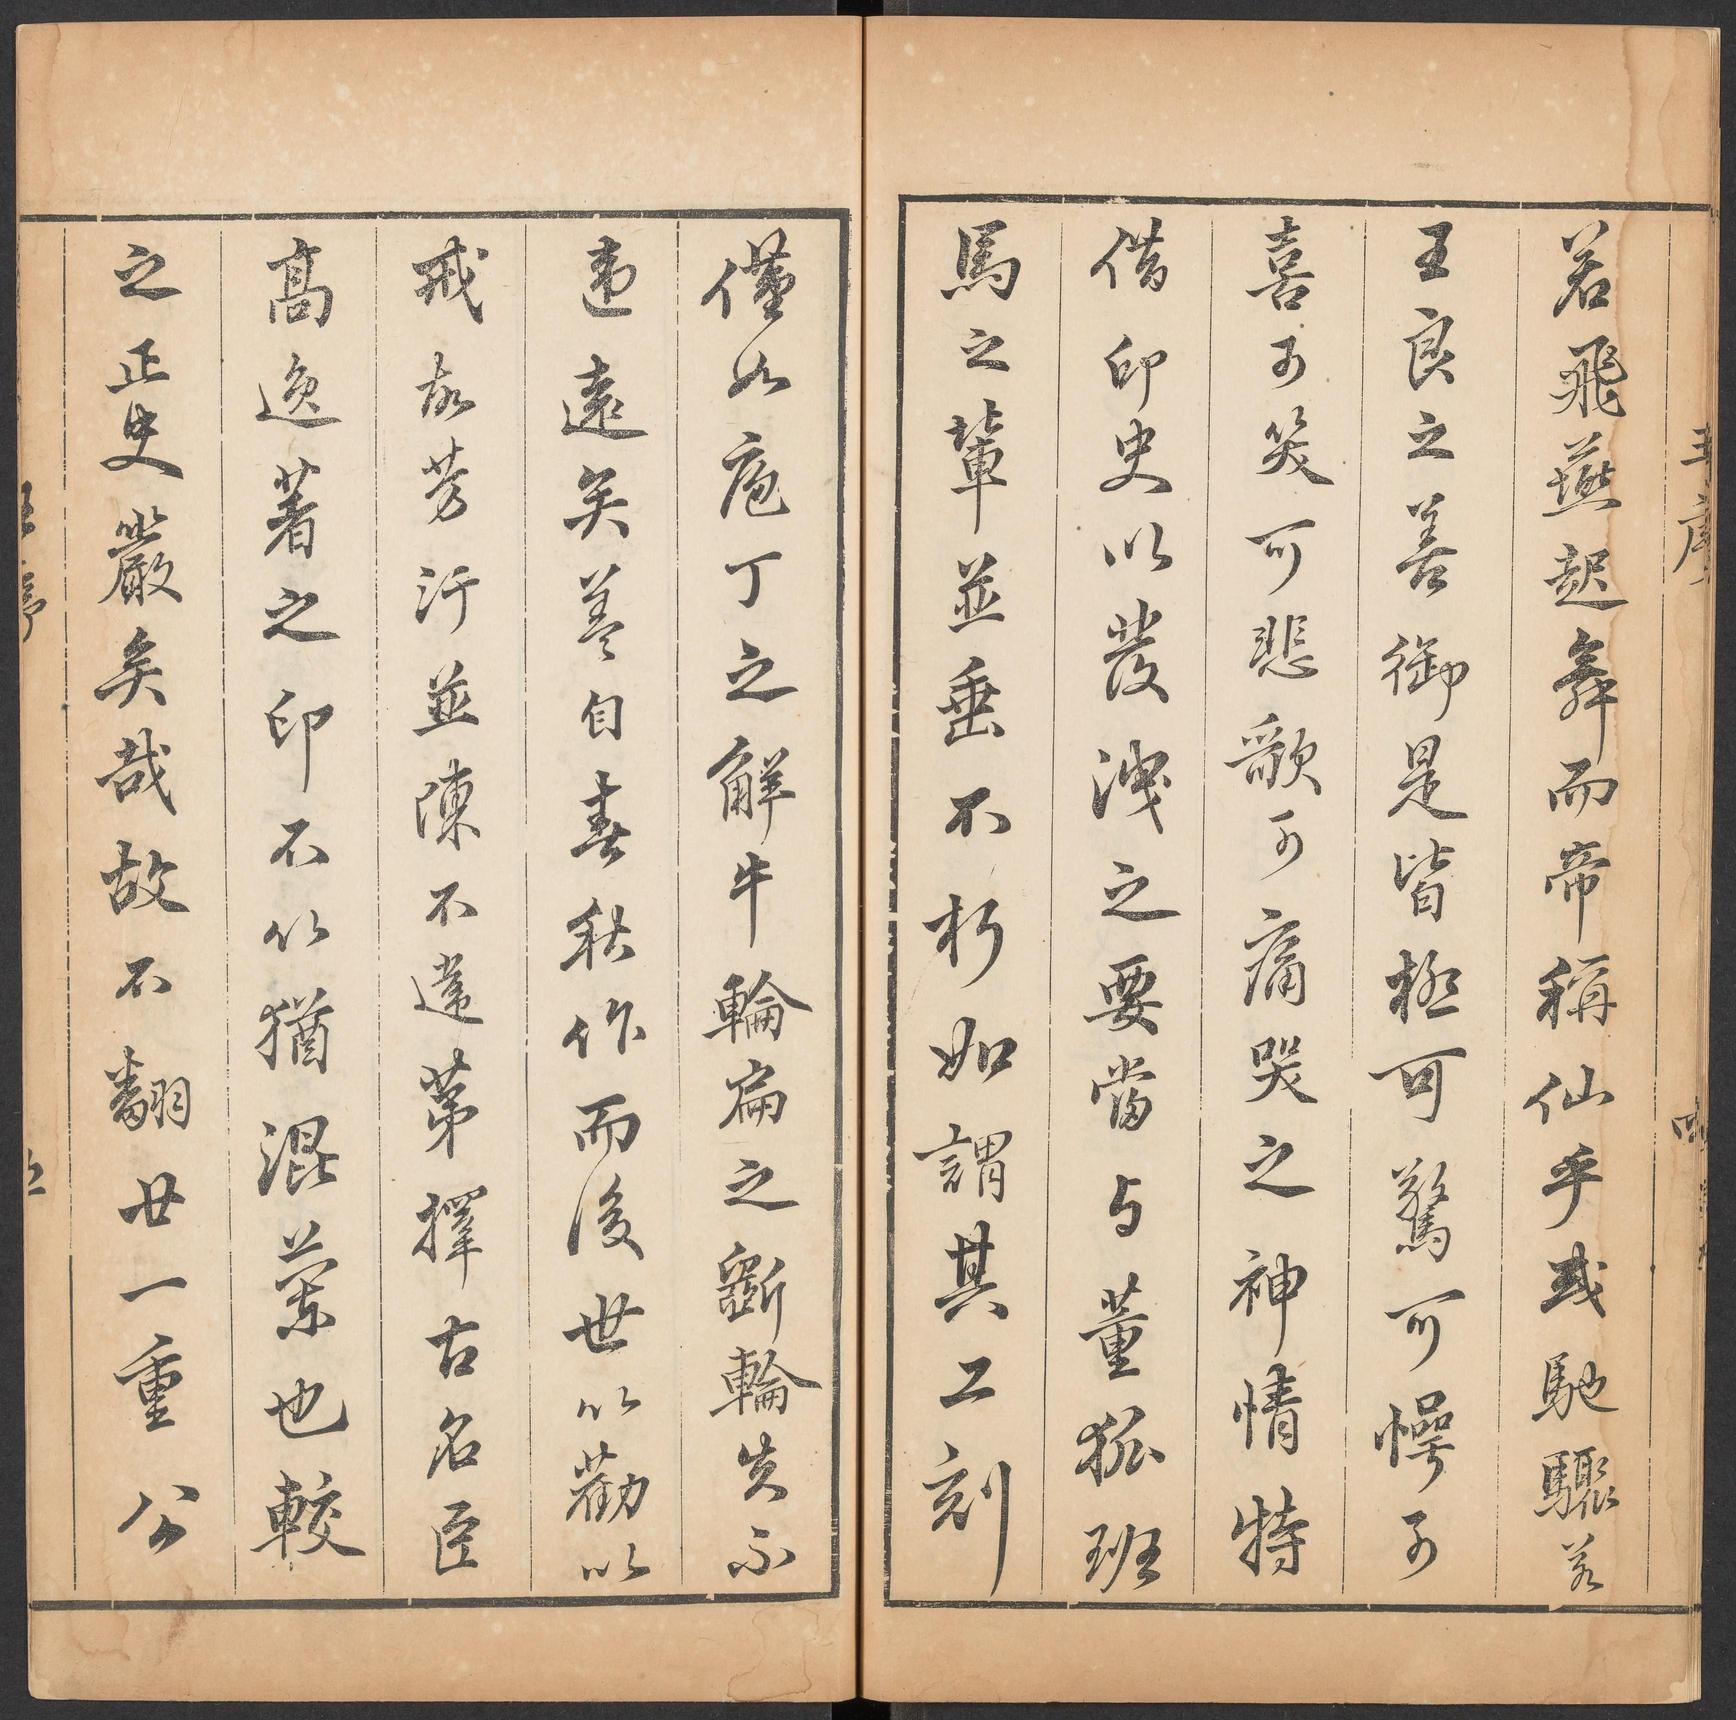 若飛燕起舞而帝稱仙乎或馳驟若
王良之善御是皆極可驚可愕可
喜可笑可悲歌可痛哭之神情特
借印史以發洩之要當与董狐班
馬之軰並垂不朽如謂其工刻
僅如庖丁之解牛輪扁之斲輪失不
違遠矣蓋自春秋作而後世以勸以
戒故芳行並陳不遑第擇古名臣
高逸著之印不以猶混蒙也較
之正史嚴矣哉故不翻廿一重公
王序